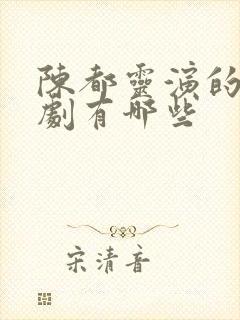 陳都靈演的
劇有哪些
宋清音